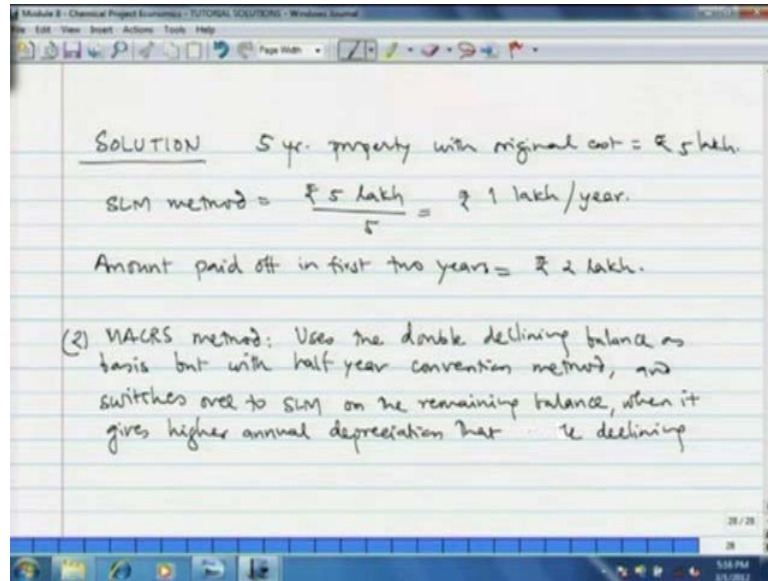 Module 8 - Chemical Project Economics - TUTORIAL SOLUTIONS - Windows Journal
File Edit View Insert Actions Tools Help
Page Width
SOLUTION 5 yr. property with original cost = ₹ 5 lakh.
SLM method = ₹ 5 lakh / 5 = ₹ 1 lakh/year.
Amount paid off in first two years = ₹ 2 lakh.
(2) MACRS method: Uses the double declining balance as
basis but with half year convention method, and
switches over to SLM on the remaining balance, when it
gives higher annual depreciation that declining
28 / 28
28
5:56 PM